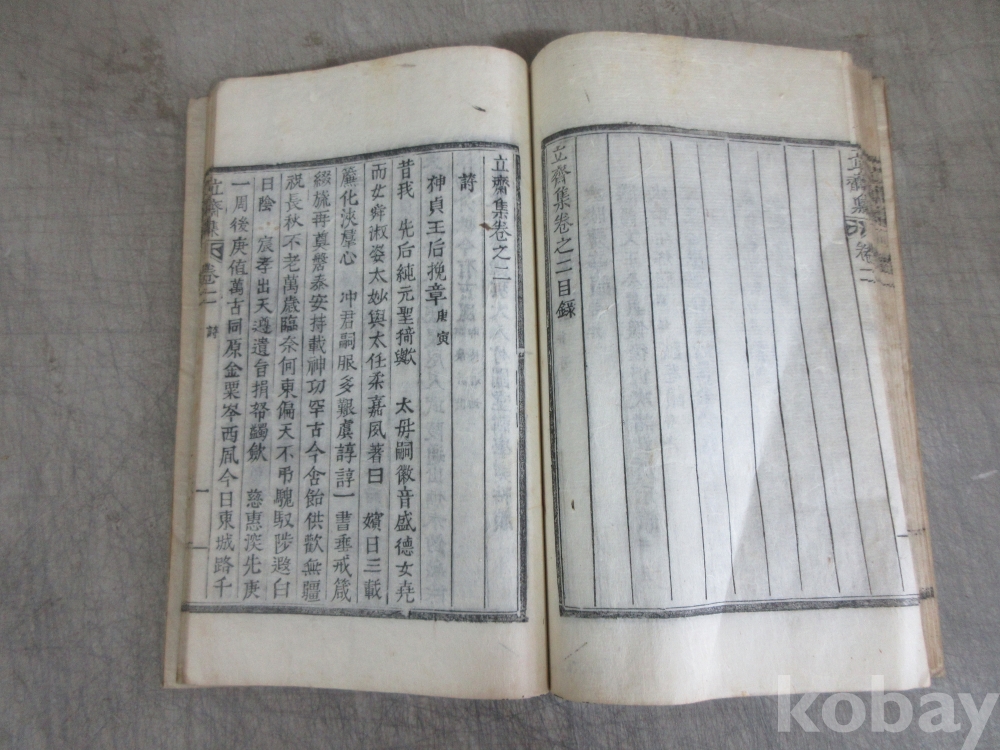 立齋集卷之二目錄
立齋集 卷二
立齋集卷之二
詩
神貞王后挽章 庚寅
昔我 先后純元聖猗歟 太毋嗣徽音盛德女堯
而女舜淑姿太姒與太任柔嘉夙著曰 嬪日三載
簾化浹羣心 冲君嗣服多艱虞諄諄一書垂戒箴
綴旒再奠磐泰安持載神功罕古今含飴供歡無疆
祝長秋不老萬歲臨奈何東偏天不弔騩馭陟遐白
日陰 宸孝出天遵遺旨捐帑蠲斂 慈惠深先庚
一周後庚值萬古同原金粟岑西風今日東城路千
立齋集 卷二 詩 一
kobay